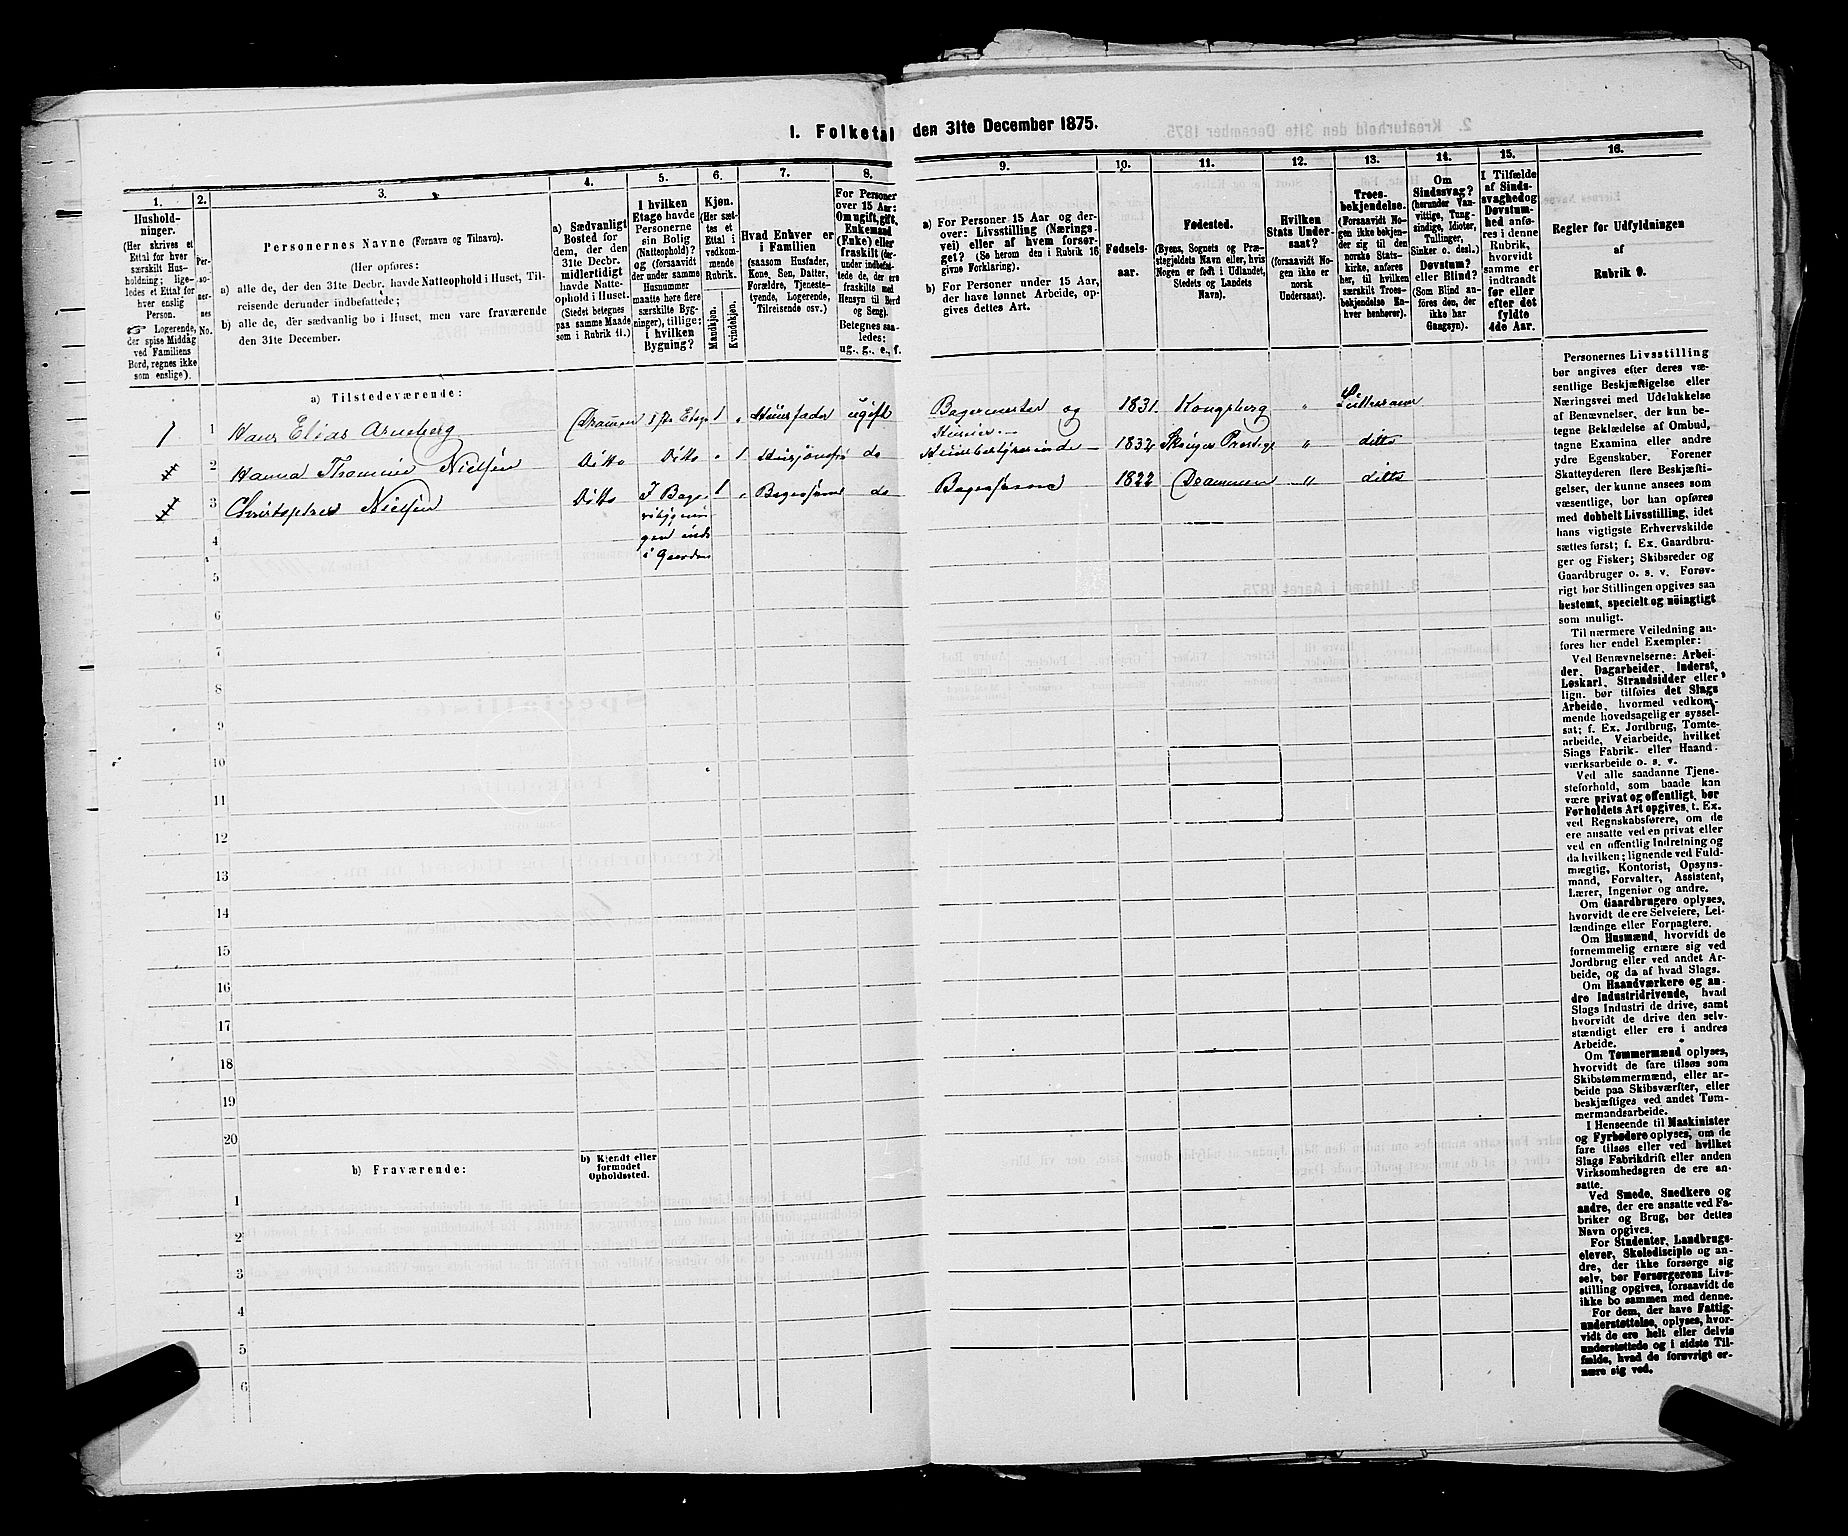 I. Folketal den 31te December 1875.
1.
Hushold-
ninger.
(Her skrives et
Ettal for hver
særskilt Hus-
holdning; lige-
ledes et Ettal for
hver enslig
Person.
☞ Logerende,
der spise Middag
ved Familiens
Bord, regnes ikke
som enslige).
2.
Per-
so-
ner-
nes
No.
3.
Personernes Navne (Fornavn og Tilnavn).
(Her opføres:
a) alle de, der den 31te Decbr. havde Natteophold i Huset, Til-
reisende derunder indbefattede;
b) alle de, der sædvanlig bo i Huset, men vare fraværende
den 31te December.
4.
a) Sædvanligt
Bosted for
dem, der den
31te Decbr.
midlertidigt
havde Natte-
ophold i Huset.
(Stedet betegnes
paa samme Maade
som i Rubrik 11.)
5.
I hvilken
Etage havde
Personerne
sin Bolig
(Natteophold)?
og (forsaavidt
der under samme
Husnummer
maatte høre flere
særskilte Byg-
ninger), tillige:
i hvilken
Bygning?
6.
Kjøn.
(Her sæt-
tes et
Ettal i
vedkom-
mende
Rubrik.
Mandkjøn.
Kvindekjøn.
7.
Hvad Enhver er
i Familien
(saasom Husfader,
Kone, Søn, Datter,
Forældre, Tjeneste-
tyende, Logerende,
Tilreisende osv.)
8.
For Personer
over 15 Aar:
Om ugift, gift,
Enkemand
(Enke) eller
fraskilt (der-
under indbefat-
tede de, der ere
fraskilte med
Hensyn til Bord
og Seng).
Betegnes saa-
ledes:
ug., g., e., f.
9.
a) For Personer 15 Aar og der-
over: Livsstilling (Nærings-
vei) eller af hvem forsør-
get? (Se herom den i Rubrik 16
givne Forklaring).
b) For Personer under 15 Aar,
der have lønnet Arbeide, op-
gives dettes Art.
10.
Fødsels-
aar.
11.
Fødested.
(Byens, Sognets og Præ-
stegjeldets Navn eller, hvis
Nogen er født i Udlandet,
Stedets og Landets
Navn).
12.
Hvilken
Stats Under-
saat?
(forsaavidt No-
gen ikke er
norsk
Undersaat).
13.
Troes-
bekjendelse.
(Forsaavidt No-
gen ikke bekjen-
der sig til den
norske Stats-
kirke, anføres
her, til hvilken
særskilt Troes-
bekjendelse En-
hver henhører).
14.
Om
Sindssvag?
(herunder Van-
vittige, Tung-
sindige, Idioter,
Tullinger,
Sinker o. desl.)
Døvstum?
eller Blind?
(Som Blind an-
føres den, der
ikke har
Gangsyn).
15.
I Tilfælde
af Sinds-
svaghed og
Døvstum-
hed anfø-
res i denne
Rubrik,
hvorvidt
samme er
indtraadt
før eller
efter det
fyldte
4de Aar.
16.
Regler for Udfyldningen
af
Rubrik 9.
a) Tilstedeværende:
1 1 Hans Elias Arneberg Drammen 1ste Etage 1 „ Huusfader ugift Bagermester og 1831. Kongsberg „ Lutheraner
Kurier-
2 Hanna Thomine Nielsen Ditto Ditto „ 1 do Huusbestyrerinde 1832 „ ditto
3 Nielsen Ditto I Bager- 1 „ Bagersvend do Bagersvend 1822 Drammen „ ditto
4 i Gaarden
5
6
7
8
9
10
11
12
13
14
15
16
17
18
19
20
b) Fraværende:
b) Kjendt eller
formodet
Opholdssted.
1
2
3
4
5
6
Personernes Livsstilling
bør angives efter deres væ-
sentlige Beskjæftigelse eller
Næringsvei med Udelukkelse
af Benævnelser, der kun be-
tegne Beklædelse af Ombud,
tagne Examina eller andre
ydre Egenskaber. Forener
Skatteyderen flere Beskjæfti-
gelser, der kunne ansees som
væsentlige, bør han opføres
med dobbelt Livsstilling, idet
hans vigtigste Erhvervskilde
sættes først; f. Ex. Gaardbru-
ger og Fisker; Skibsreder og
Gaardbruger o. s. v. Forøv-
rigt bør Stillingen opgives saa
bestemt, specielt og nøiagtigt
som muligt.
Til nærmere Veiledning an-
føres her endel Exempler:
Ved Benævnelserne: Arbei-
der, Dagarbeider, Inderst,
Løskarl, Strandsidder eller
lign. bør tilføies det Slags
Arbeide, hvormed vedkom-
mende hovedsagelig er syssel-
sat; f. Ex. Jordbrug, Tomte-
arbeide, Veiarbeide, hvilket
Slags Fabrik- eller Haand-
værksarbeide o. s. v.
Ved alle saadanne Tjene-
steforhold, som baade kan
være privat og offentligt, bør
Forholdets Art opgives, t. Ex.
ved Regnskabsførere, om de
ere ansatte ved en privat eller
ved en offentlig Indretning og
da hvilken; lignende ved Fuld-
mægtig, Kontorist, Opsyns-
mand, Forvalter, Assistent,
Lærer, Ingeniør og andre.
Om Gaardbrugere oplyses,
hvorvidt de ere Selveiere, Lei-
lændinge eller Forpagtere.
Om Husmænd, hvorvidt de
fornemmelig ernære sig ved
Jordbrug eller ved andet Ar-
beide, og da af hvad Slags.
Om Haandværkere og an-
dre Industridrivende, hvad
Slags Industri de drive, samt
hvorvidt de drive den selv-
stændigt eller ere i andres
Arbeide.
Om Tømmermænd oplyses,
hvorvidt de fare tilsøs som
Skibstømmermænd, eller ar-
beide paa Skibsværfter, eller
beskjæftiges ved andet Tøm-
mermandsarbeide.
I Henseende til Maskinister
og Fyrbødere oplyses, om de
fare tilsøs eller ved hvilket
Slags Fabrikdrift eller anden
Virksomhedsgren de ere an-
satte.
Ved Smede, Snedkere og
andre, der ere ansatte ved Fa-
briker og Brug, bør dettes
Navn opgives.
For Studenter, Landbrugs-
elever, Skoledisciple og an-
dre, der ikke forsørge sig
selv, bør Forsørgerens Livs-
stilling opgives, forsaavidt de
ikke bo sammen med denne.
For dem, der have Fattig-
understøttelse, oplyses, hvor-
vidt de ere helt eller delvis
understøttede og i sidste Til-
fælde, hvad de forøvrigt er-
nære sig ved.